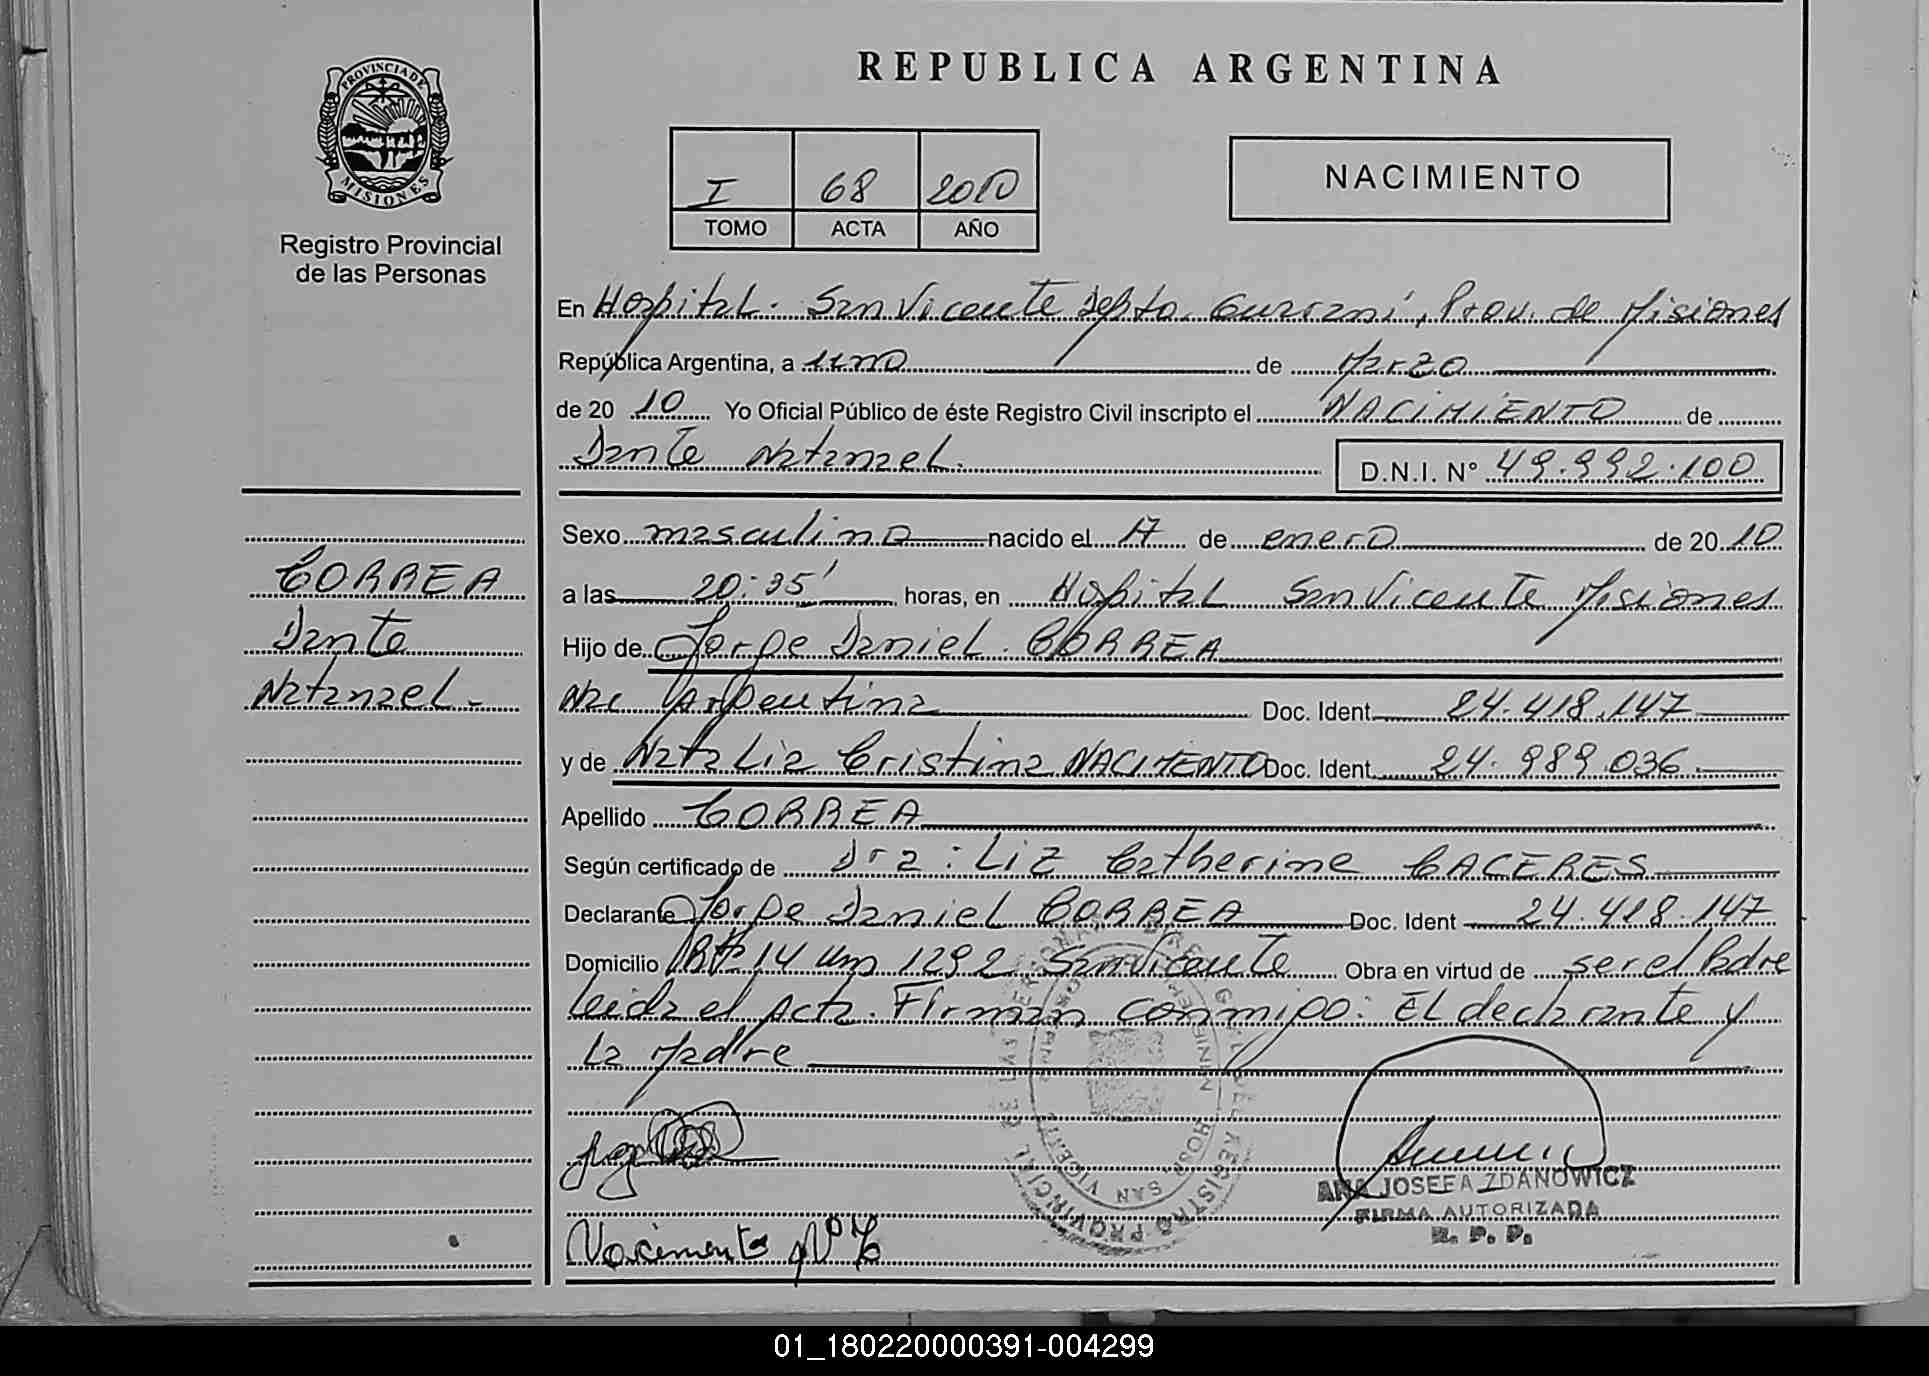 REPUBLICA ARGENTINA
PROVINCIA DE MISIONES
Registro Provincial
de las Personas
I 68 2010
TOMO ACTA AÑO
NACIMIENTO
En Hospital. San Vicente Depto. Guaraní, Prov. de Misiones
República Argentina, a uno de Marzo
de 20 10 Yo Oficial Público de éste Registro Civil inscripto el NACIMIENTO de
Dante Natanael. D.N.I. N° 49.992.100
Sexo masculino nacido el 17 de enero de 20 10
a las 20:35' horas, en Hospital San Vicente Misiones
Hijo de Jorge Daniel CORREA
Nac Argentina Doc. Ident. 24.418.147
y de Natalia Cristina NACIMENTO Doc. Ident. 24.989.036
Apellido CORREA
Según certificado de Dra: Liz Catherine CACERES
Declarante Jorge Daniel CORREA Doc. Ident 24.418.147
Domicilio Rta 14 Km 1292 San Vicente Obra en virtud de ser el Padre
Leida el Acta. Firman conmigo: El declarante y
la Madre
CORREA
Dante
Natanael -
REGISTRO PROVINCIAL DE LAS PERSONAS
HOSP. SAN VICENTE
ANA JOSEFA ZDANOWICZ
FIRMA AUTORIZADA
R. P. P.
Nacimento
01_180220000391-004299